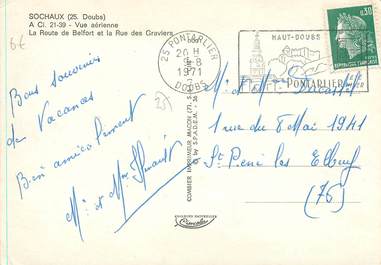 SOCHAUX (25. Doubs)
A Cl. 21-39 - Vue aérienne
La Route de Belfort et la Rue des Graviers
6€
25 PONTARLIER
20 H
9-8
1971
DOUBS
HAUT-DOUBS
PONTARLIER
0,30
Bons souvenirs
de Vacances
Bien amicalement
M. et Mme
25
COMBIER IMPRIMEUR MACON
S.P.A.D.E.M.
M et Mme
1 rue du 8 Mai 1941
St Pierre les Elbeuf
(76)
Cimcolor